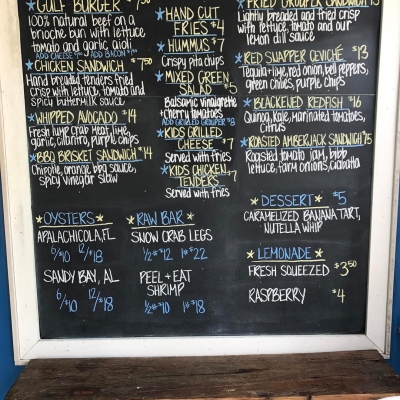 *GULF BURGER *7.50
100% natural beef on a
brioche bun with lettuce
tomato and garlic aioli
ADD CHEESE ADD BACON
*CHICKEN SANDWICH *7.50
Hand breaded tenders fried
crisp with lettuce, tomato and
spicy buttermilk sauce
*WHIPPED AVOCADO $14
Fresh lump crab meat, lime,
garlic, cilantro, purple chips
*BBQ BRISKET SANDWICH $14
Chipotle, orange bbq sauce,
spicy vinegar slaw
*HAND CUT
FRIES $4
*HUMMUS $7
Crispy pita chips
*MIXED GREEN
SALAD $5
Balsamic vinaigrette
+cherry tomatoes
ADD GRILLED GROUPER $8
*KIDS GRILLED
CHEESE $7
Served with fries
*KIDS CHICKEN
TENDERS $7
Served with fries
*FRIED GROUPER SANDWICH 15
Lightly breaded and fried crisp
with lettuce, tomato and our
lemon dill sauce
*RED SNAPPER CEVICHÉ $13
Tequila-lime, red onion, bell peppers,
green chilies, purple chips
*BLACKENED REDFISH $16
Quinoa, Kale, Marinated tomatoes,
Citrus
*ROASTED AMBERJACK SANDWICH $15
Roasted tomato jam, bibb
lettuce, farm onions, Ciabatta
*DESSERT* $5
CARAMELIZED BANANA TART,
NUTELLA WHIP
*OYSTERS*
APALACHICOLA, FL
6/$10 12/$18
SANDY BAY, AL
6/$10 12/$18
*RAW BAR*
SNOW CRAB LEGS
½# $12 1# $22
PEEL+EAT
SHRIMP
½# $10 1# $18
*LEMONADE*
FRESH SQUEEZED $3.50
RASPBERRY $4